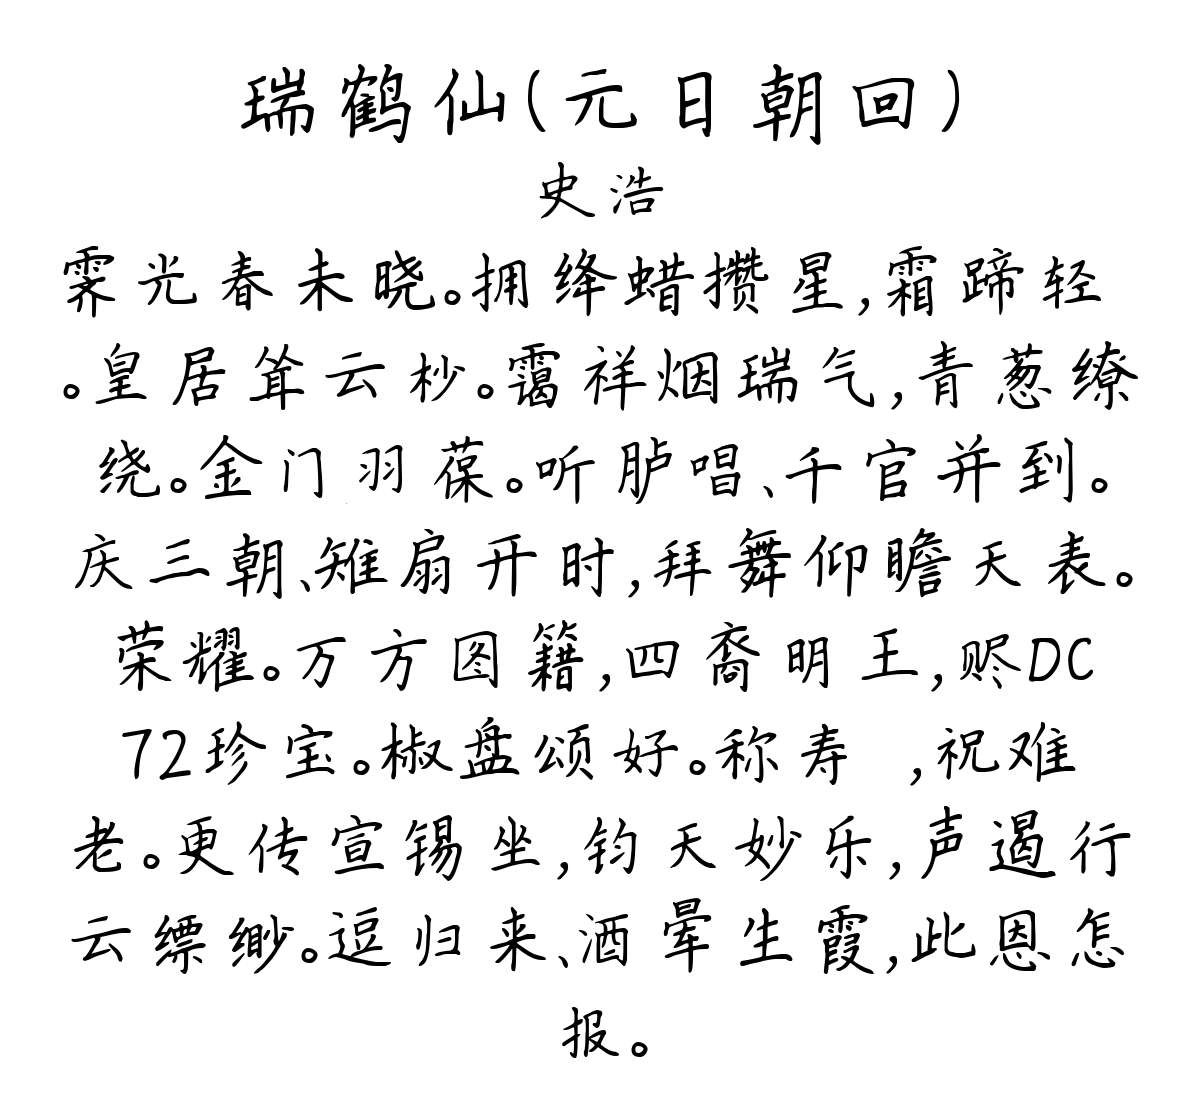 瑞鹤仙(元日朝回)
史浩
霁光春未晓。拥绛蜡攒星,霜蹄轻
。皇居耸云杪。霭祥烟瑞气,青葱缭
绕。金门羽葆。听胪唱、千官并到。
庆三朝、雉扇开时,拜舞仰瞻天表。
荣耀。万方图籍,四裔明王,赆DC
72珍宝。椒盘颂好。称寿 ,祝难
老。更传宣锡坐,钧天妙乐,声遏行
云缥缈。逗归来、酒晕生霞,此恩怎
报。